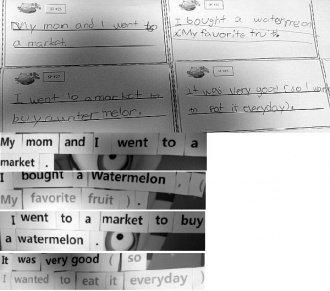 My mom and I went to
a market.
I bought a watermeon
(My favorite fruit).
I went to a market to
buy a wntermelor.
It was very good (so I want
to eat it everyday).
My mom and I went to a
market .
I bought a Watermelon . (
My favorite fruit ) .
I went to a market to buy
a watermelon .
It was very good ( so
I wanted to eat it everyday )